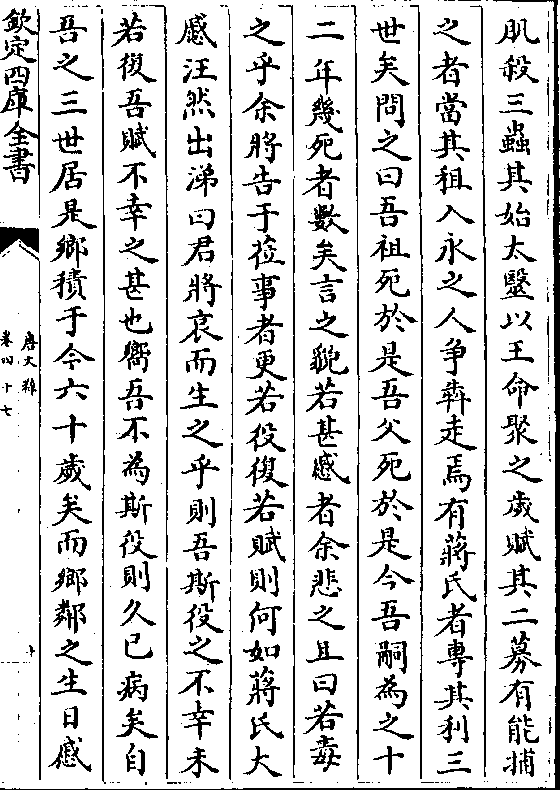 肌殺三蟲其始太醫以王命聚之歲賦其二募有能捕
之者當其租入永之人争犇走焉有蔣氏者專其利三
世矣問之曰吾祖死於是吾父死於是今吾嗣為之十
二年幾死者數矣言之貌若甚慼者余悲之且曰若毒
之乎余將告于莅事者更若役復若賦則何如蔣氏大
慼汪然出涕曰君將哀而生之乎則吾斯役之不幸未
若復吾賦不幸之甚也嚮吾不為斯役則久已病矣自
吾之三世居是鄉積于今六十歲矣而鄉鄰之生日慼
欽定四庫全書
唐文粹
卷四十七